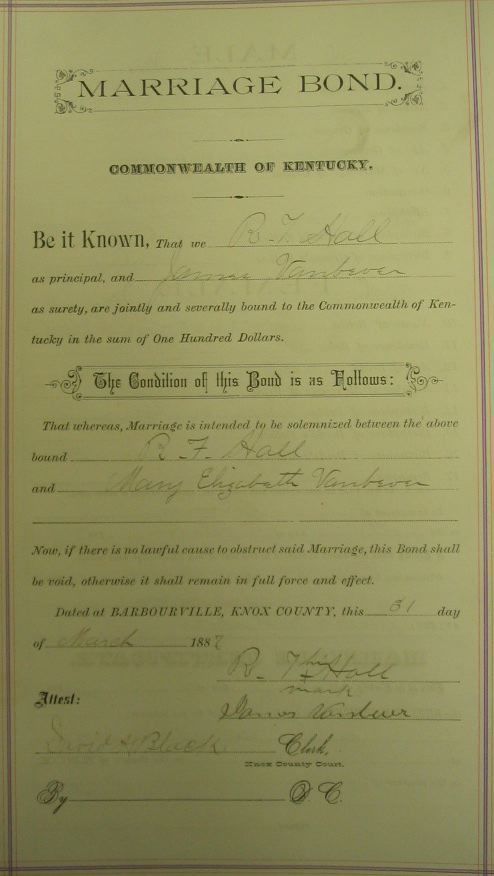 MARRIAGE BOND.
COMMONWEALTH OF KENTUCKY.
Be it Known, That we R. F. Hall
as principal, and James Vanbever
as surety, are jointly and severally bound to the Commonwealth of Ken-
tucky in the sum of One Hundred Dollars.
The Condition of this Bond is as Follows:
That whereas, Marriage is intended to be solemnized between the above
bound R. F. Hall
and Mary Elizabeth Vanbever
Now, if there is no lawful cause to obstruct said Marriage, this Bond shall
be void, otherwise it shall remain in full force and effect.
Dated at BARBOURVILLE, KNOX COUNTY, this 31 day
of March 1887
R. F. his Hall
mark
Attest:
James Vanbever
Black Clerk,
Knox County Court.
By D. C.